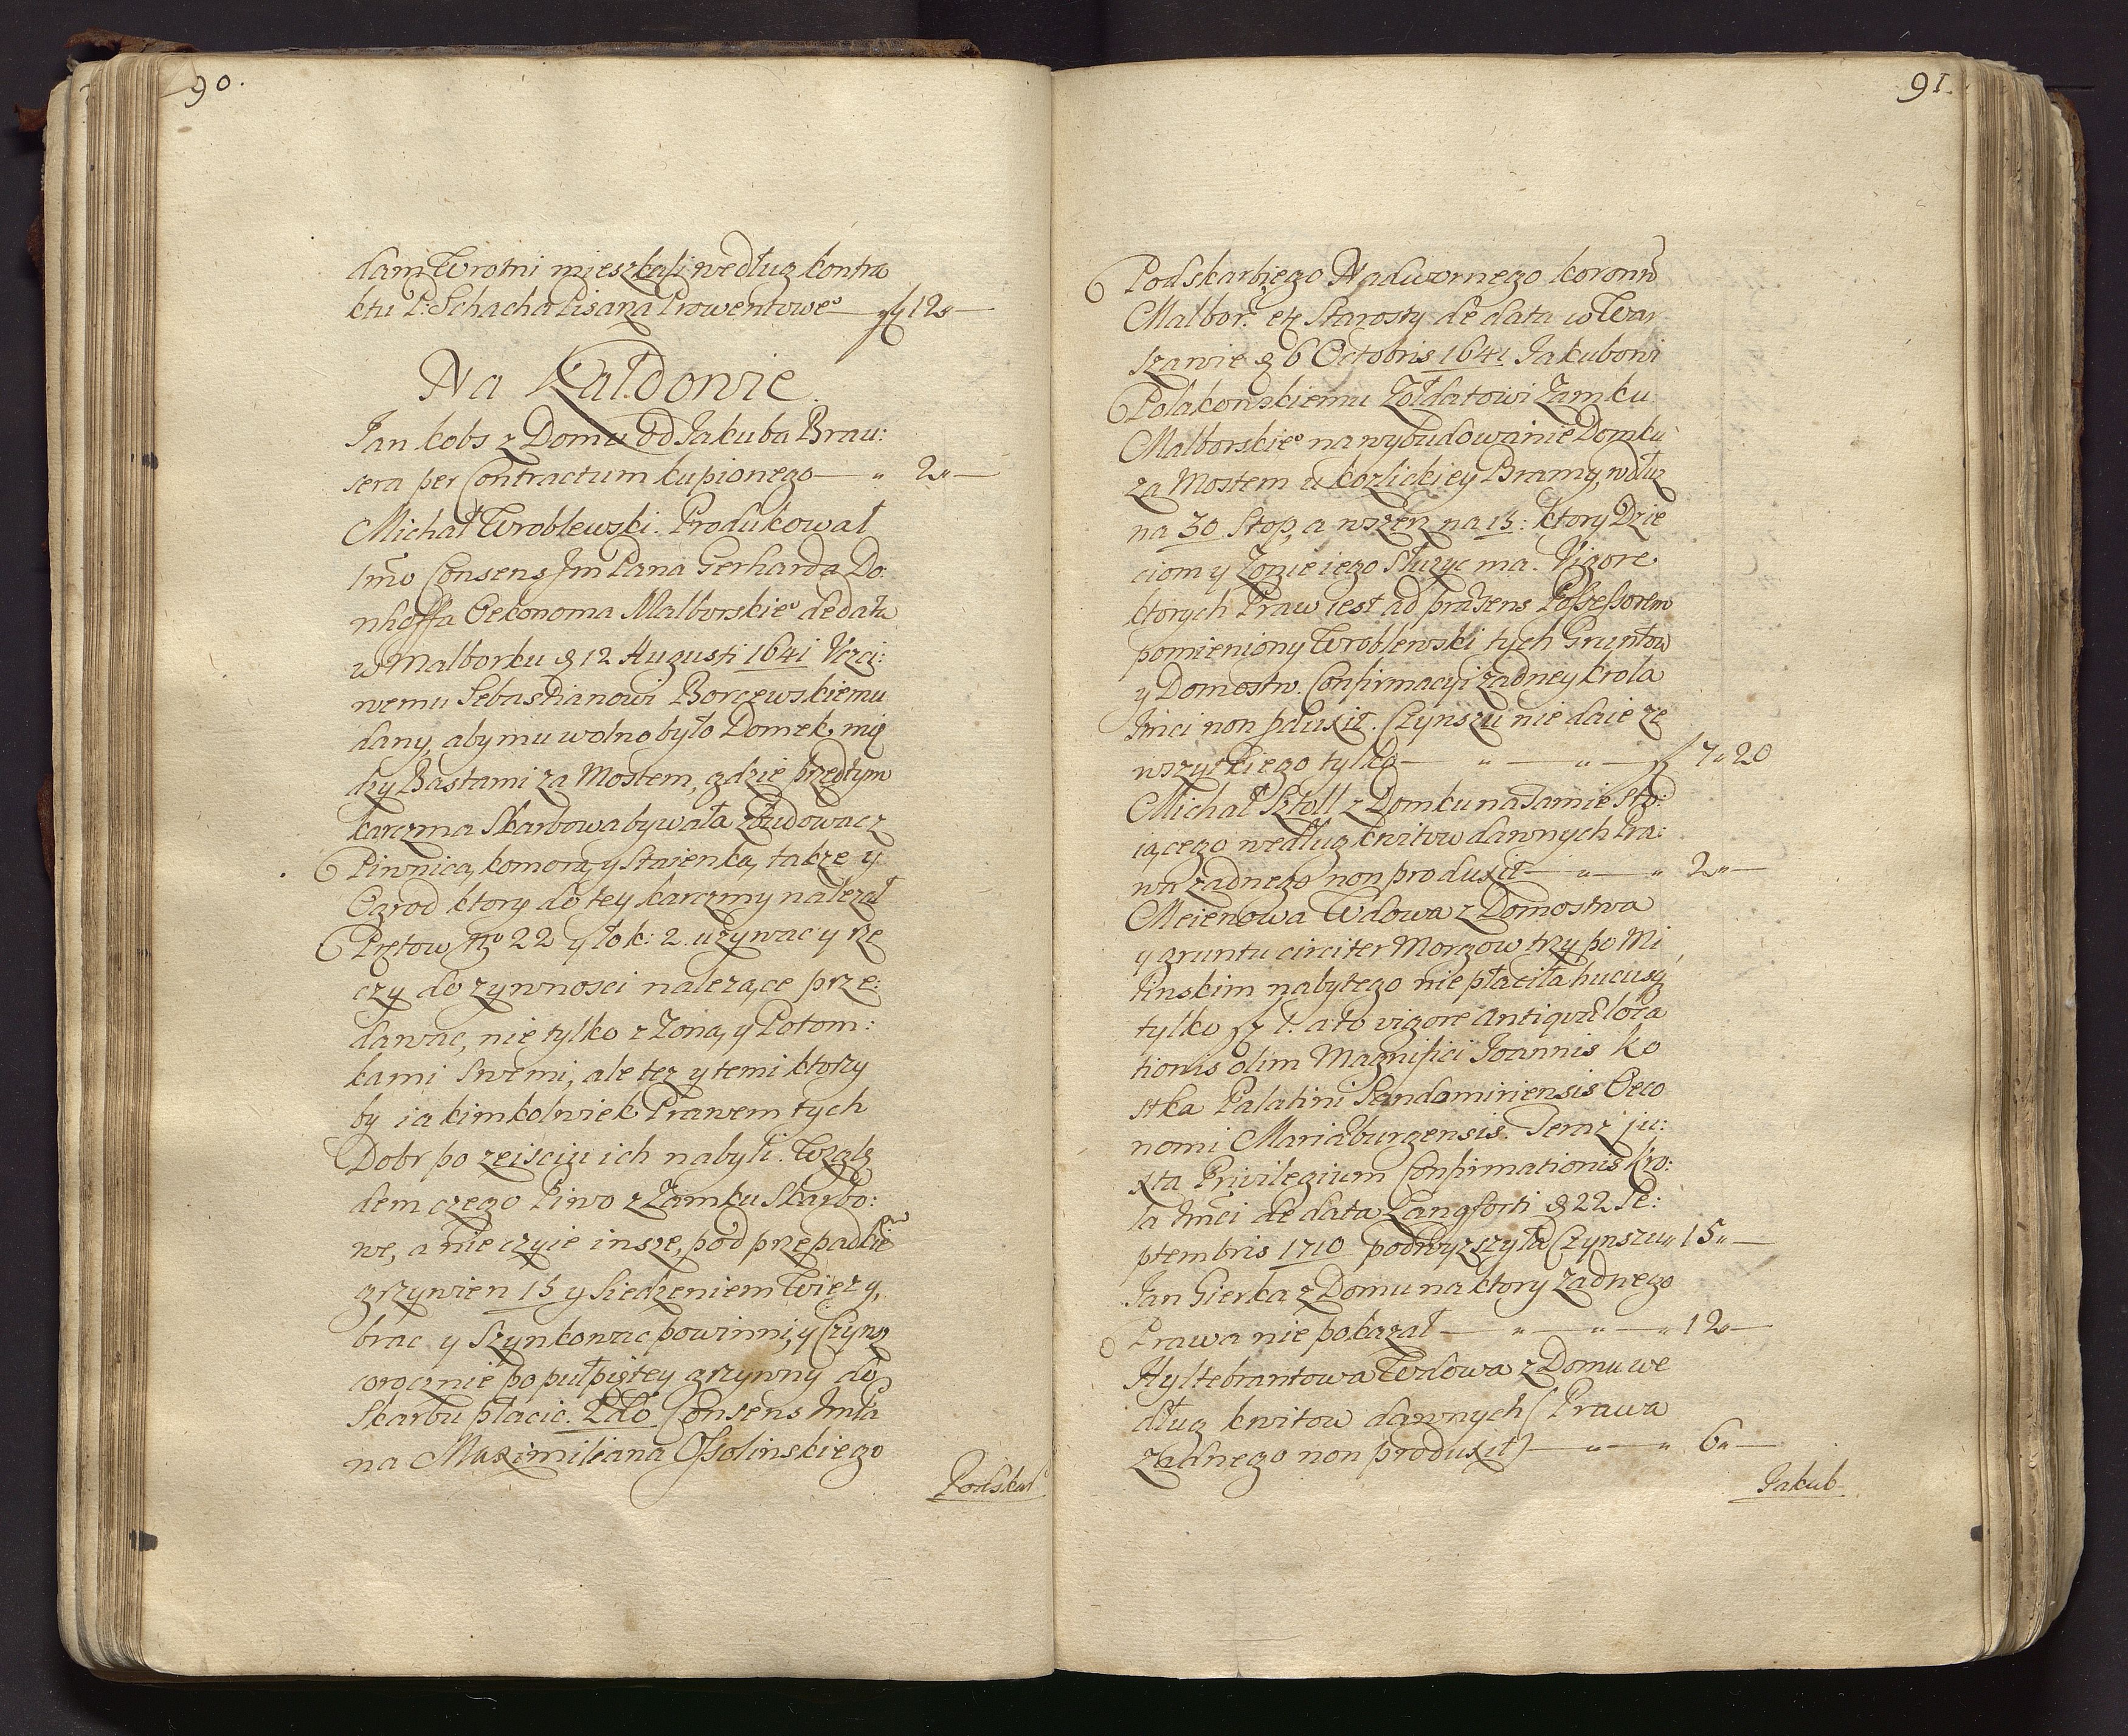 90.
dam Wrotni mieszkali według kontra
ktu P: Schacha Pisarza Prowentoweº — fl 12 „ —
Na Kałdowie.
Jan kobs z Domu od Jakuba Brau:
sera per Contractum kupionego — „ 2 „ —
Michał Wroblewski. Produkował
1mo Consens Jm Pana Gerharda Do:
nhoffa Oekonoma Malborskieº de data
w Malborku d 12 Augusti 1641 Uczci:
wemu Sebastianowi Borczewskiemu
dany, aby mu wolno było Domek mię
dzy Bastami za Mostem, gdzie przedtym
karczma Skarbowa bywała zbudowac z
Piwnicą, komorą, y Staienką, takze y
Ogrod ktory do tey karczmy nalezał
Prętow Nº 22 y łok: 2. uzywac y rze
czy do zywnosci nalezące prze:
dawac, nie tylko z Zoną, y Potom:
kami Swemi, ale tez y temi ktorzy
by iakimkolwiek Prawem tych
Dobr po zeisciu ich nabyli. Wzglę
dem czego Piwo z Zamku Skarbo:
we, a nie czyie insze, pod przepadkiē
grzywien 15 y Siedzeniem Wiezy,
brac y Szynkowac powinni, y Czynsz
corocznie po pułpiętey grzywny do
Skarbu płacic. 2do Consens Jmpa
na Maximiliana Ossolinskiego
Podskar
91.
Podskarbiego Nadwornego koronn̄
Malbor: etc Starosty de data w War
szawie d 6 Octobris 1641 Jakubowi
Polakowskiemu Zołdatowi Zamku
Malborskieº na wybudowanie Domku
za Mostem u kozlickiey Bramy, wdłuz
na 30 Stop, a wszerz na 15: ktory Dzie
ciom y Zonie iego Słuzyc ma. Vigore
ktorych Praw iest ad præsens Possessorem
pomieniony Wroblewski tych Gruntow
y Domostw. Confirmacyi zadney krola
Jmci non pduxit. Czynszu nie daie ze
wszytkiego tylko — „ — „ — fl 7 „ 20
Michał Sztoll z Domku na Tamie Sto:
iącego według kwitow dawnych Pra:
wa zadnego non produxit — „ — „ 2 „ —
Meienowa Wdowa z Domostwa
y gruntu circiter Morgow trzy po Mi
tinskim nabytego nie płaciła hucusq
tylko fl 1. a to vigore antiquæ loca
tionis olim Magnifici Joannis Ko
stka Palatini Sandomiriensis Oeco
nomi Mariæburgensis. Teraz ju:
xta Privilegium Confirmationis kro:
la Jmci de data Langforti d 22 Se:
ptembris 1710 podwyzszyła Czynszu „ 15 „ —
Jan Gierka z Domu na ktory zadnego
Prawa nie pokazał — „ — „ — „ 12 „ —
Hyltebrantowa Wdowa z Domu we
dług kwitow dawnych (Prawa
zadnego non produxit) — „ — „ 6 „ —
Jakub